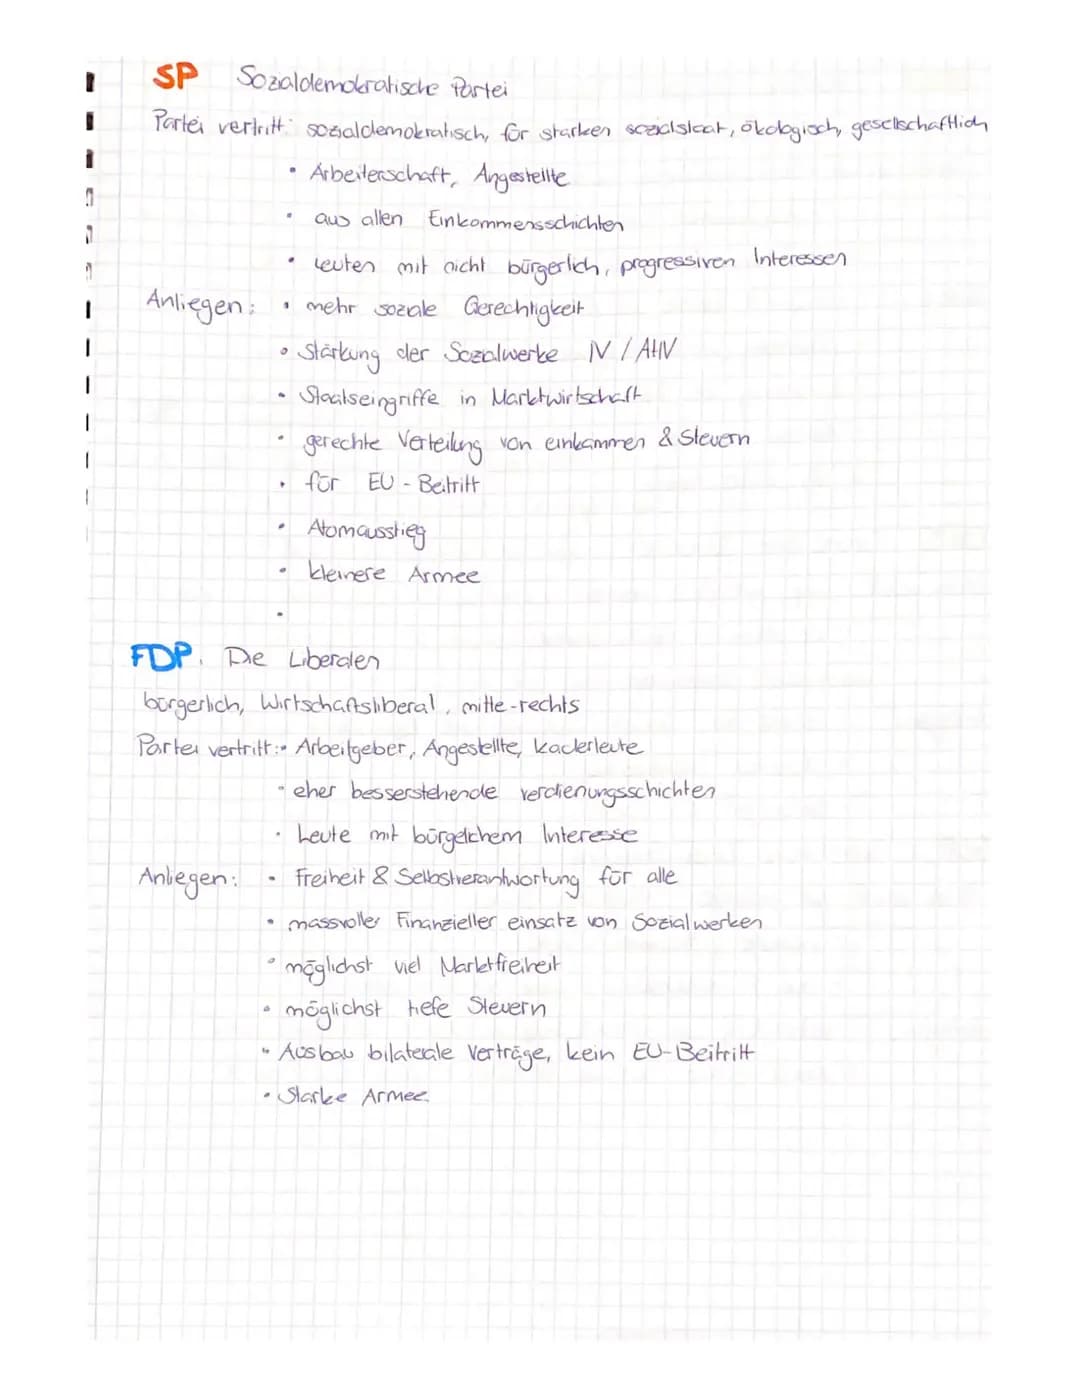 SP Sozialdemokratische Partei
Partei vertritt: sozialdemokratisch, für starken sozialstaat, ökologisch, gesellschaftlich
• Arbeiterschaft, Angestellte
• aus allen Einkommensschichten
• Leuten mit nicht bürgerlich, progressiven Interessen
Anliegen: • mehr soziale Gerechtigkeit
• Stärkung der Sozialwerke IV / AHV
• Staatseingriffe in Marktwirtschaft
• gerechte Verteilung von einkommen & Steuern
• für EU - Beitritt
• Atomausstieg
• kleinere Armee
•
FDP. Die Liberalen
bürgerlich, Wirtschaftsliberal, mitte-rechts
Partei vertritt: • Arbeitgeber, Angestellte, kaderleute
• eher besserstehende verdienungsschichten
• Leute mit bürgelchem Interesse
Anliegen: • Freiheit & Selbstverantwortung für alle
• massvoller Finanzieller einsatz von Sozialwerken
• möglichst viel Marktfreiheit
• möglichst tiefe Steuern
• Ausbau bilaterale Verträge, kein EU-Beitritt
• Starke Armee.